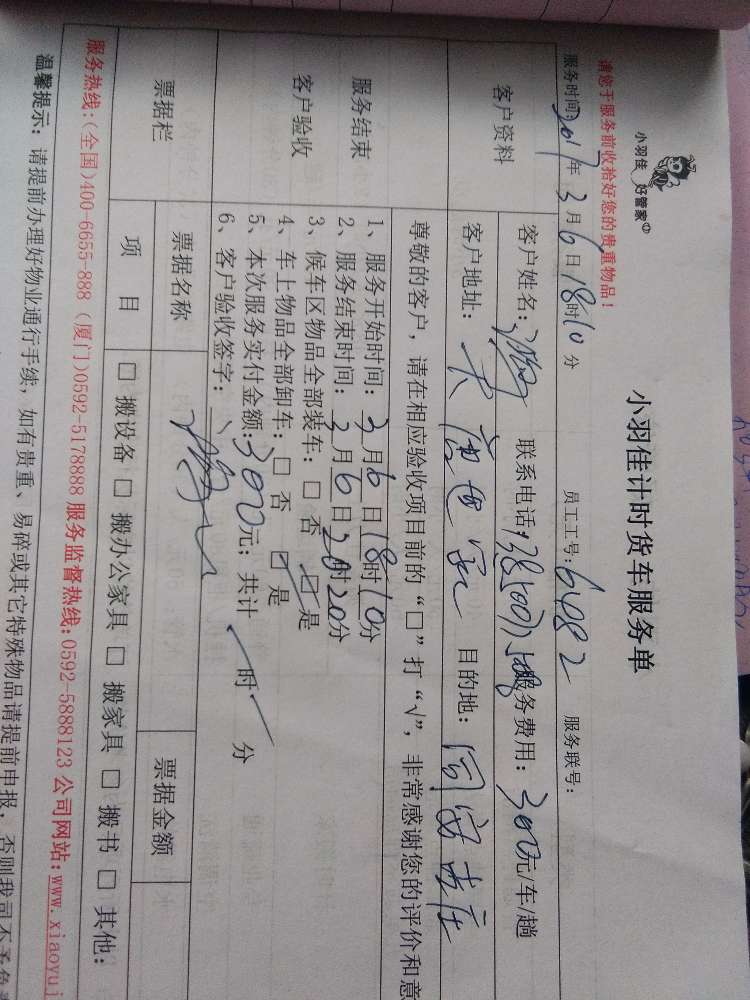 小羽佳 好管家
小羽佳计时货车服务单
请您于服务前收拾好您的贵重物品！
服务时间：2017年3月6日18时10分 员工工号：6482 服务联号：
客户资料
客户姓名： 联系电话： 服务费用：300元/车/趟
客户地址： 目的地：同安
服务结束
客户验收
尊敬的客户，请在相应验收项目前的“□”打“√”，非常感谢您的评价和意
1、服务开始时间：3月6日18时10分
2、服务结束时间：3月6日20时20分
3、候车区物品全部装车：□ 否 ☑ 是
4、车上物品全部卸车：□ 否 ☑ 是
5、本次服务实付金额：300元；共计 时 分
6、客户验收签字：
票据栏
票据名称 票据金额
项 目 □ 搬设备 □ 搬办公家具 □ 搬家具 □ 搬书 □ 其他：
服务热线：(全国)400-6655-888 (厦门)0592-5178888 服务监督热线：0592-5888123 公司网站：www.xiaoyuj
温馨提示：请提前办理好物业通行手续，如有贵重、易碎或其它特殊物品请提前申报，否则我司不予